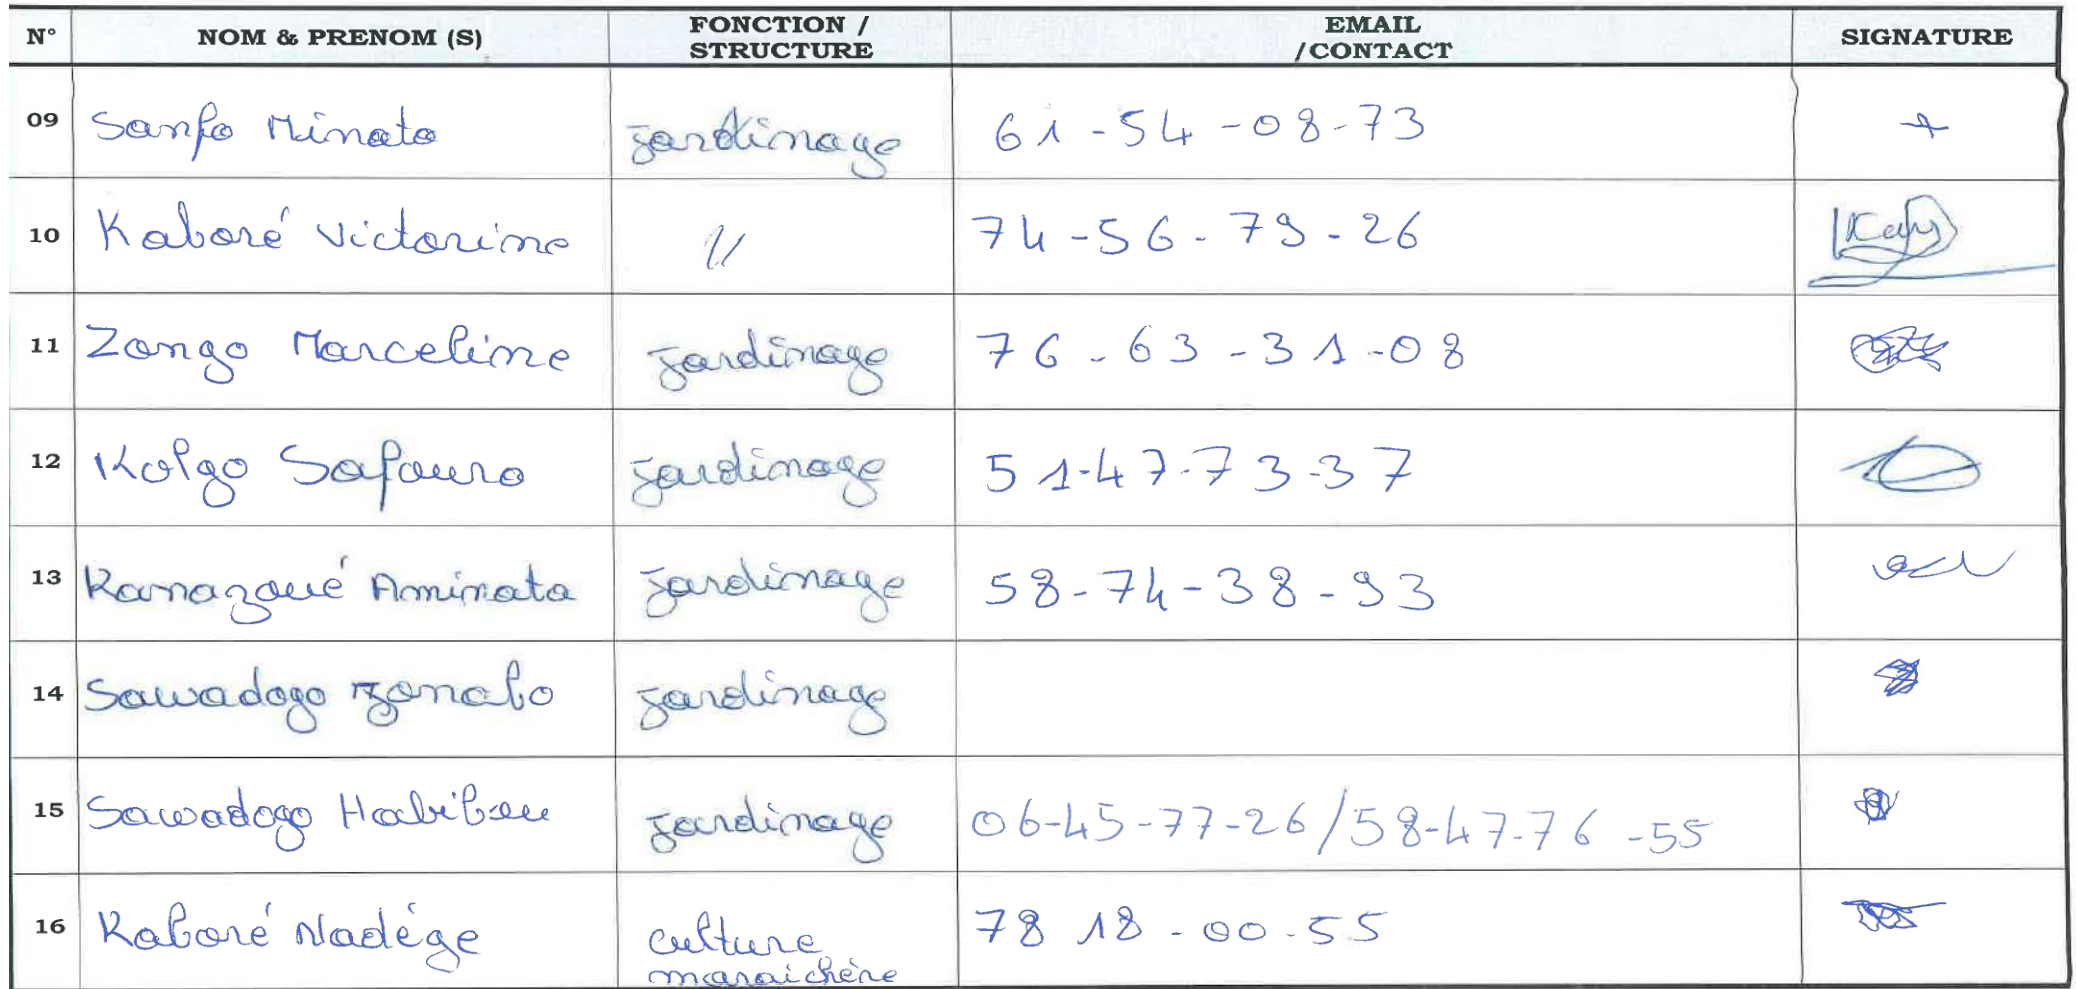 N° NOM & PRENOM (S) FONCTION / STRUCTURE EMAIL /CONTACT SIGNATURE
09 Sanfo Minata jardinage 61-54-08-73 +
10 Kaboré Victorine // 74-56-79-26
11 Zongo Marceline jardinage 76-63-31-08
12 Kolgo Safoura jardinage 51-47-73-37
13 Kanazoué Aminata jardinage 58-74-38-93
14 Sawadogo jardinage
15 Sawadogo Habibou jardinage 06-45-77-26/58-47-76-55
16 Kaboré Nadége culture maraichère 78 18-00-55